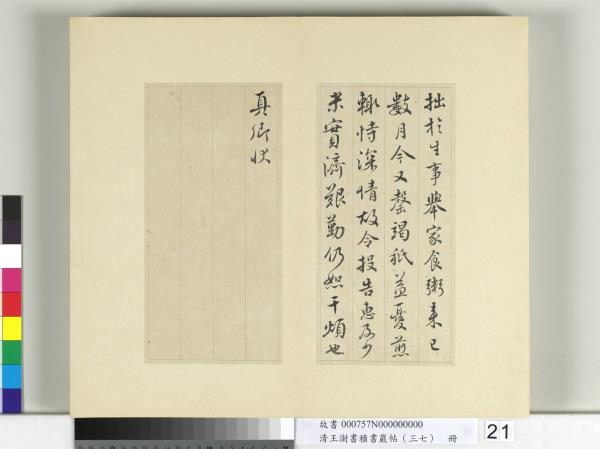 拙於生事舉家食粥來已
數月今又罄竭秖益憂煎
輒恃深情故令投告惠及少
米實濟艱勤仍恕干煩也
真卿狀
故書 000757N000000000
清王澍書積書巖帖(三七) 冊
21